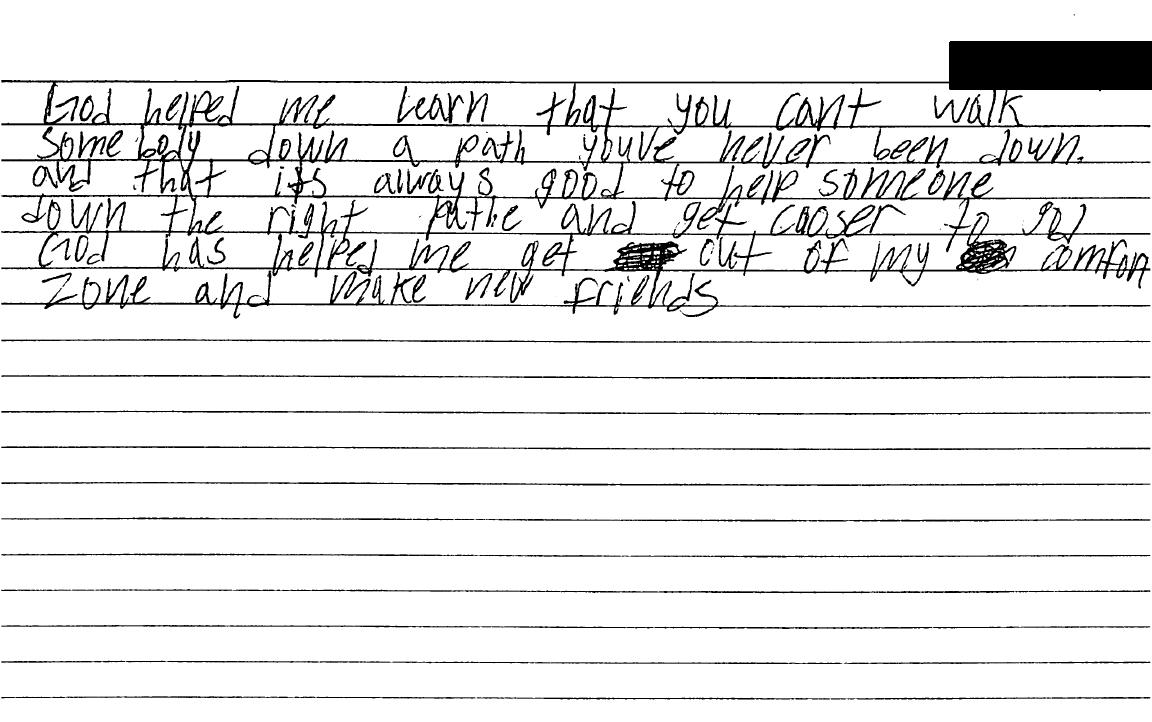 God helped me learn that you cant walk
somebody down a path youve never been down.
and that its always good to help someone
down the right pathe and get cooser to god
God has helped me get out of my comfort
zone and make new friends